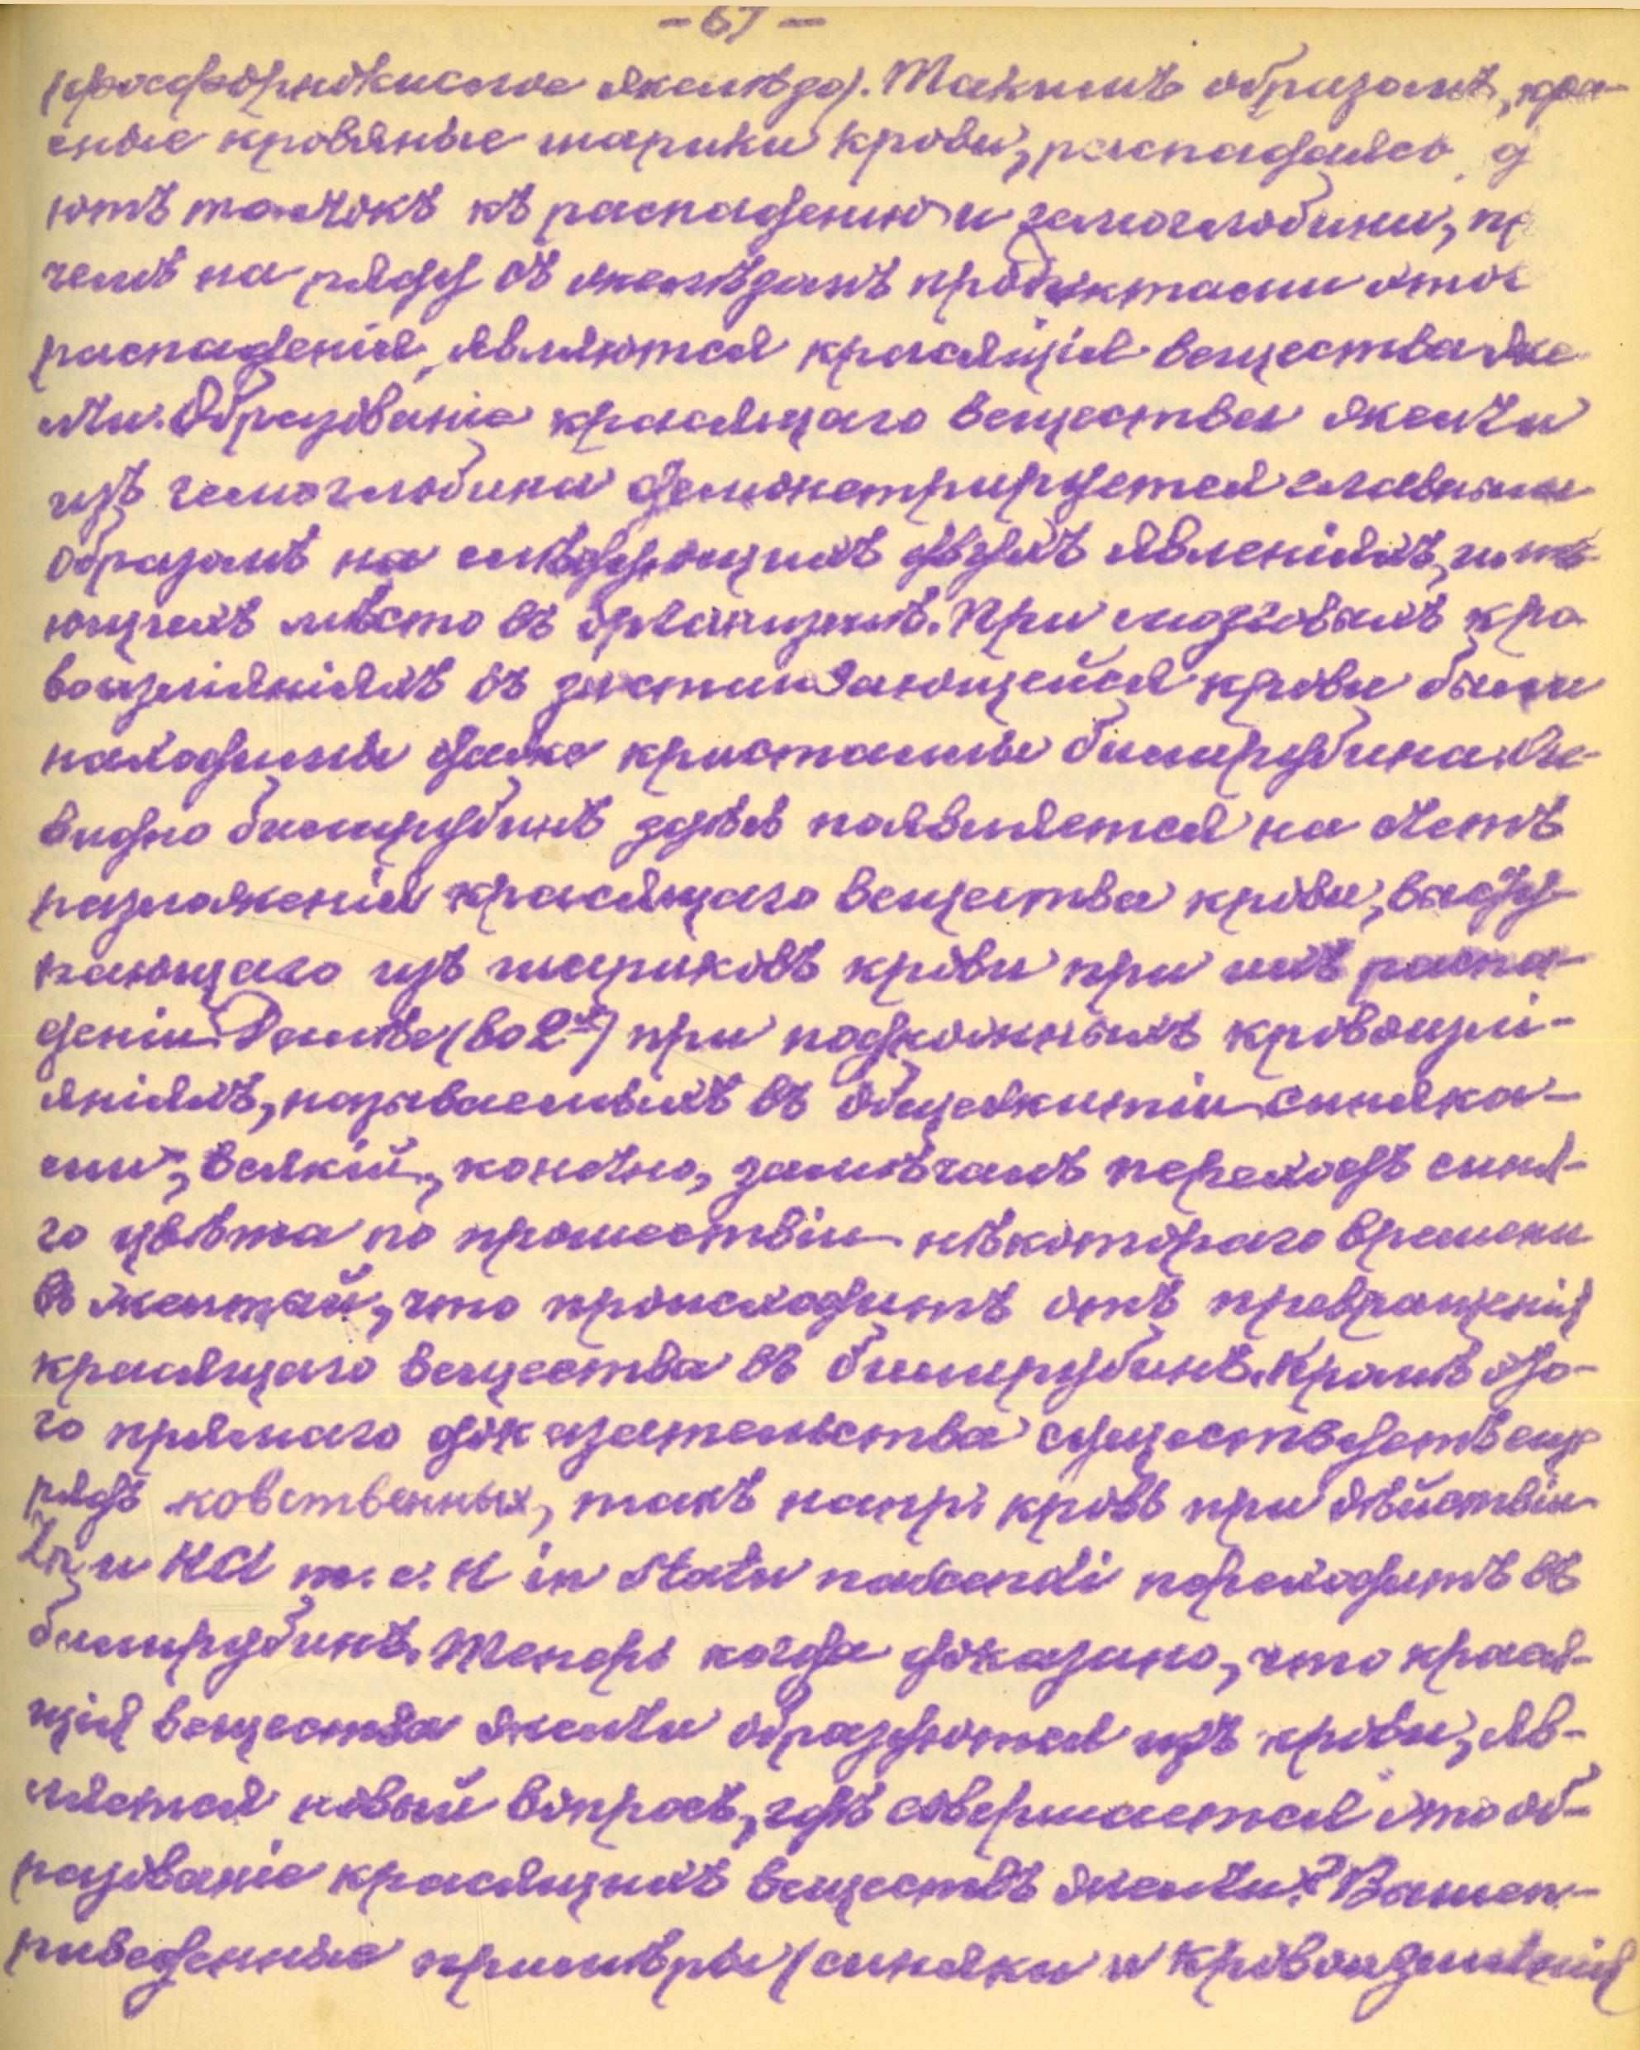 (фосфорнокислое желѣзо). Такимъ образомъ, кра-
сные кровяные шарики крови, распадаясь, д
ютъ толчокъ къ распаденію и гемоглобина, пр
чемъ на ряду съ желѣзомъ продуктами этог
распаденія, являются красящія вещества же
лчи. Образованіе красящаго вещества желчи
изъ гемоглобина демонстрируется главнымъ
образомъ на слѣдующихъ двухъ явленіяхъ, имѣ-
ющихъ мѣсто въ организмѣ. При мозговыхъ кро
воизліяніяхъ въ застаивающейся крови были
находимы даже кристаллы билирубина. Оче-
видно билирубинъ здѣсь появляется на счетъ
разложенія красящаго вещества крови, высту-
пающаго изъ шариковъ крови при ихъ распа-
деніи. Далѣе (во 2хъ) при подкожныхъ кровоизлі-
яніяхъ, называемыхъ въ общежитіи синяка-
ми, всякій, конечно, замѣчалъ переходъ сине-
го цвѣта по прошествіи нѣкотораго времени
въ желтый, что происходитъ отъ превращенія
красящаго вещества въ билирубинъ. Кромѣ это-
го прямаго доказательства существуетъ еще
рядъ ковственныхъ, такъ напр. кровь при дѣйствіи
Zn и HCl т. е. H in statu nascendi переходитъ въ
билирубинъ. Теперь когда доказано, что крася-
щія вещества желчи образуются изъ крови, яв-
ляется новый вопросъ, гдѣ совершается это об-
разованіе красящихъ веществъ желчи? Вышеп-
риведенные примѣры (синяки и кровоизліянія